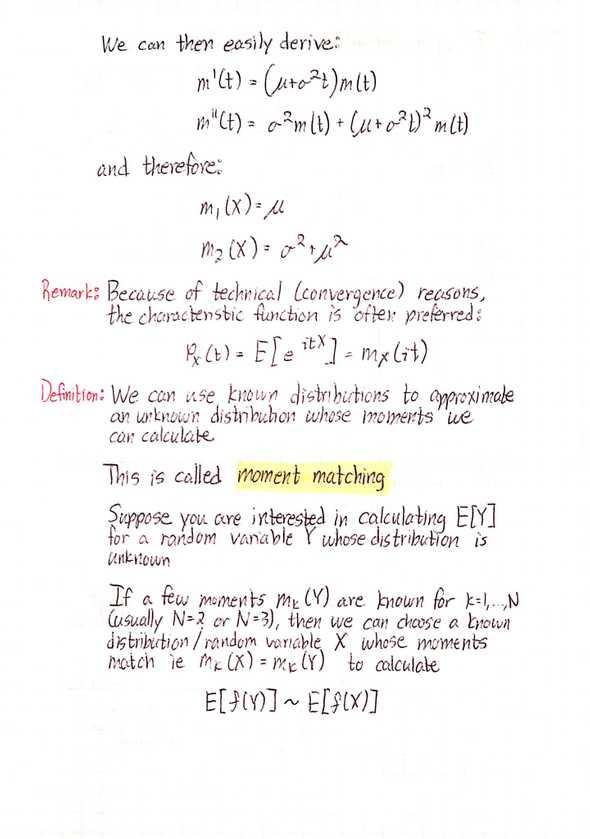 We can then easily derive:
m'(t) = (μ+σ²t)m(t)
m''(t) = σ²m(t) + (μ+σ²t)²m(t)
and therefore:
m₁(X) = μ
m₂(X) = σ²+μ²
Remark: Because of technical (convergence) reasons,
the characteristic function is often preferred:
φₓ(t) = E[e^{itX}] = mₓ(it)
Definition: We can use known distributions to approximate
an unknown distribution whose moments we
can calculate
This is called moment matching
Suppose you are interested in calculating E[Y]
for a random variable Y whose distribution is
unknown
If a few moments mₖ(Y) are known for k=1,...,N
(usually N=2 or N=3), then we can choose a known
distribution/random variable X whose moments
match ie mₖ(X) = mₖ(Y) to calculate
E[f(Y)] ~ E[f(X)]